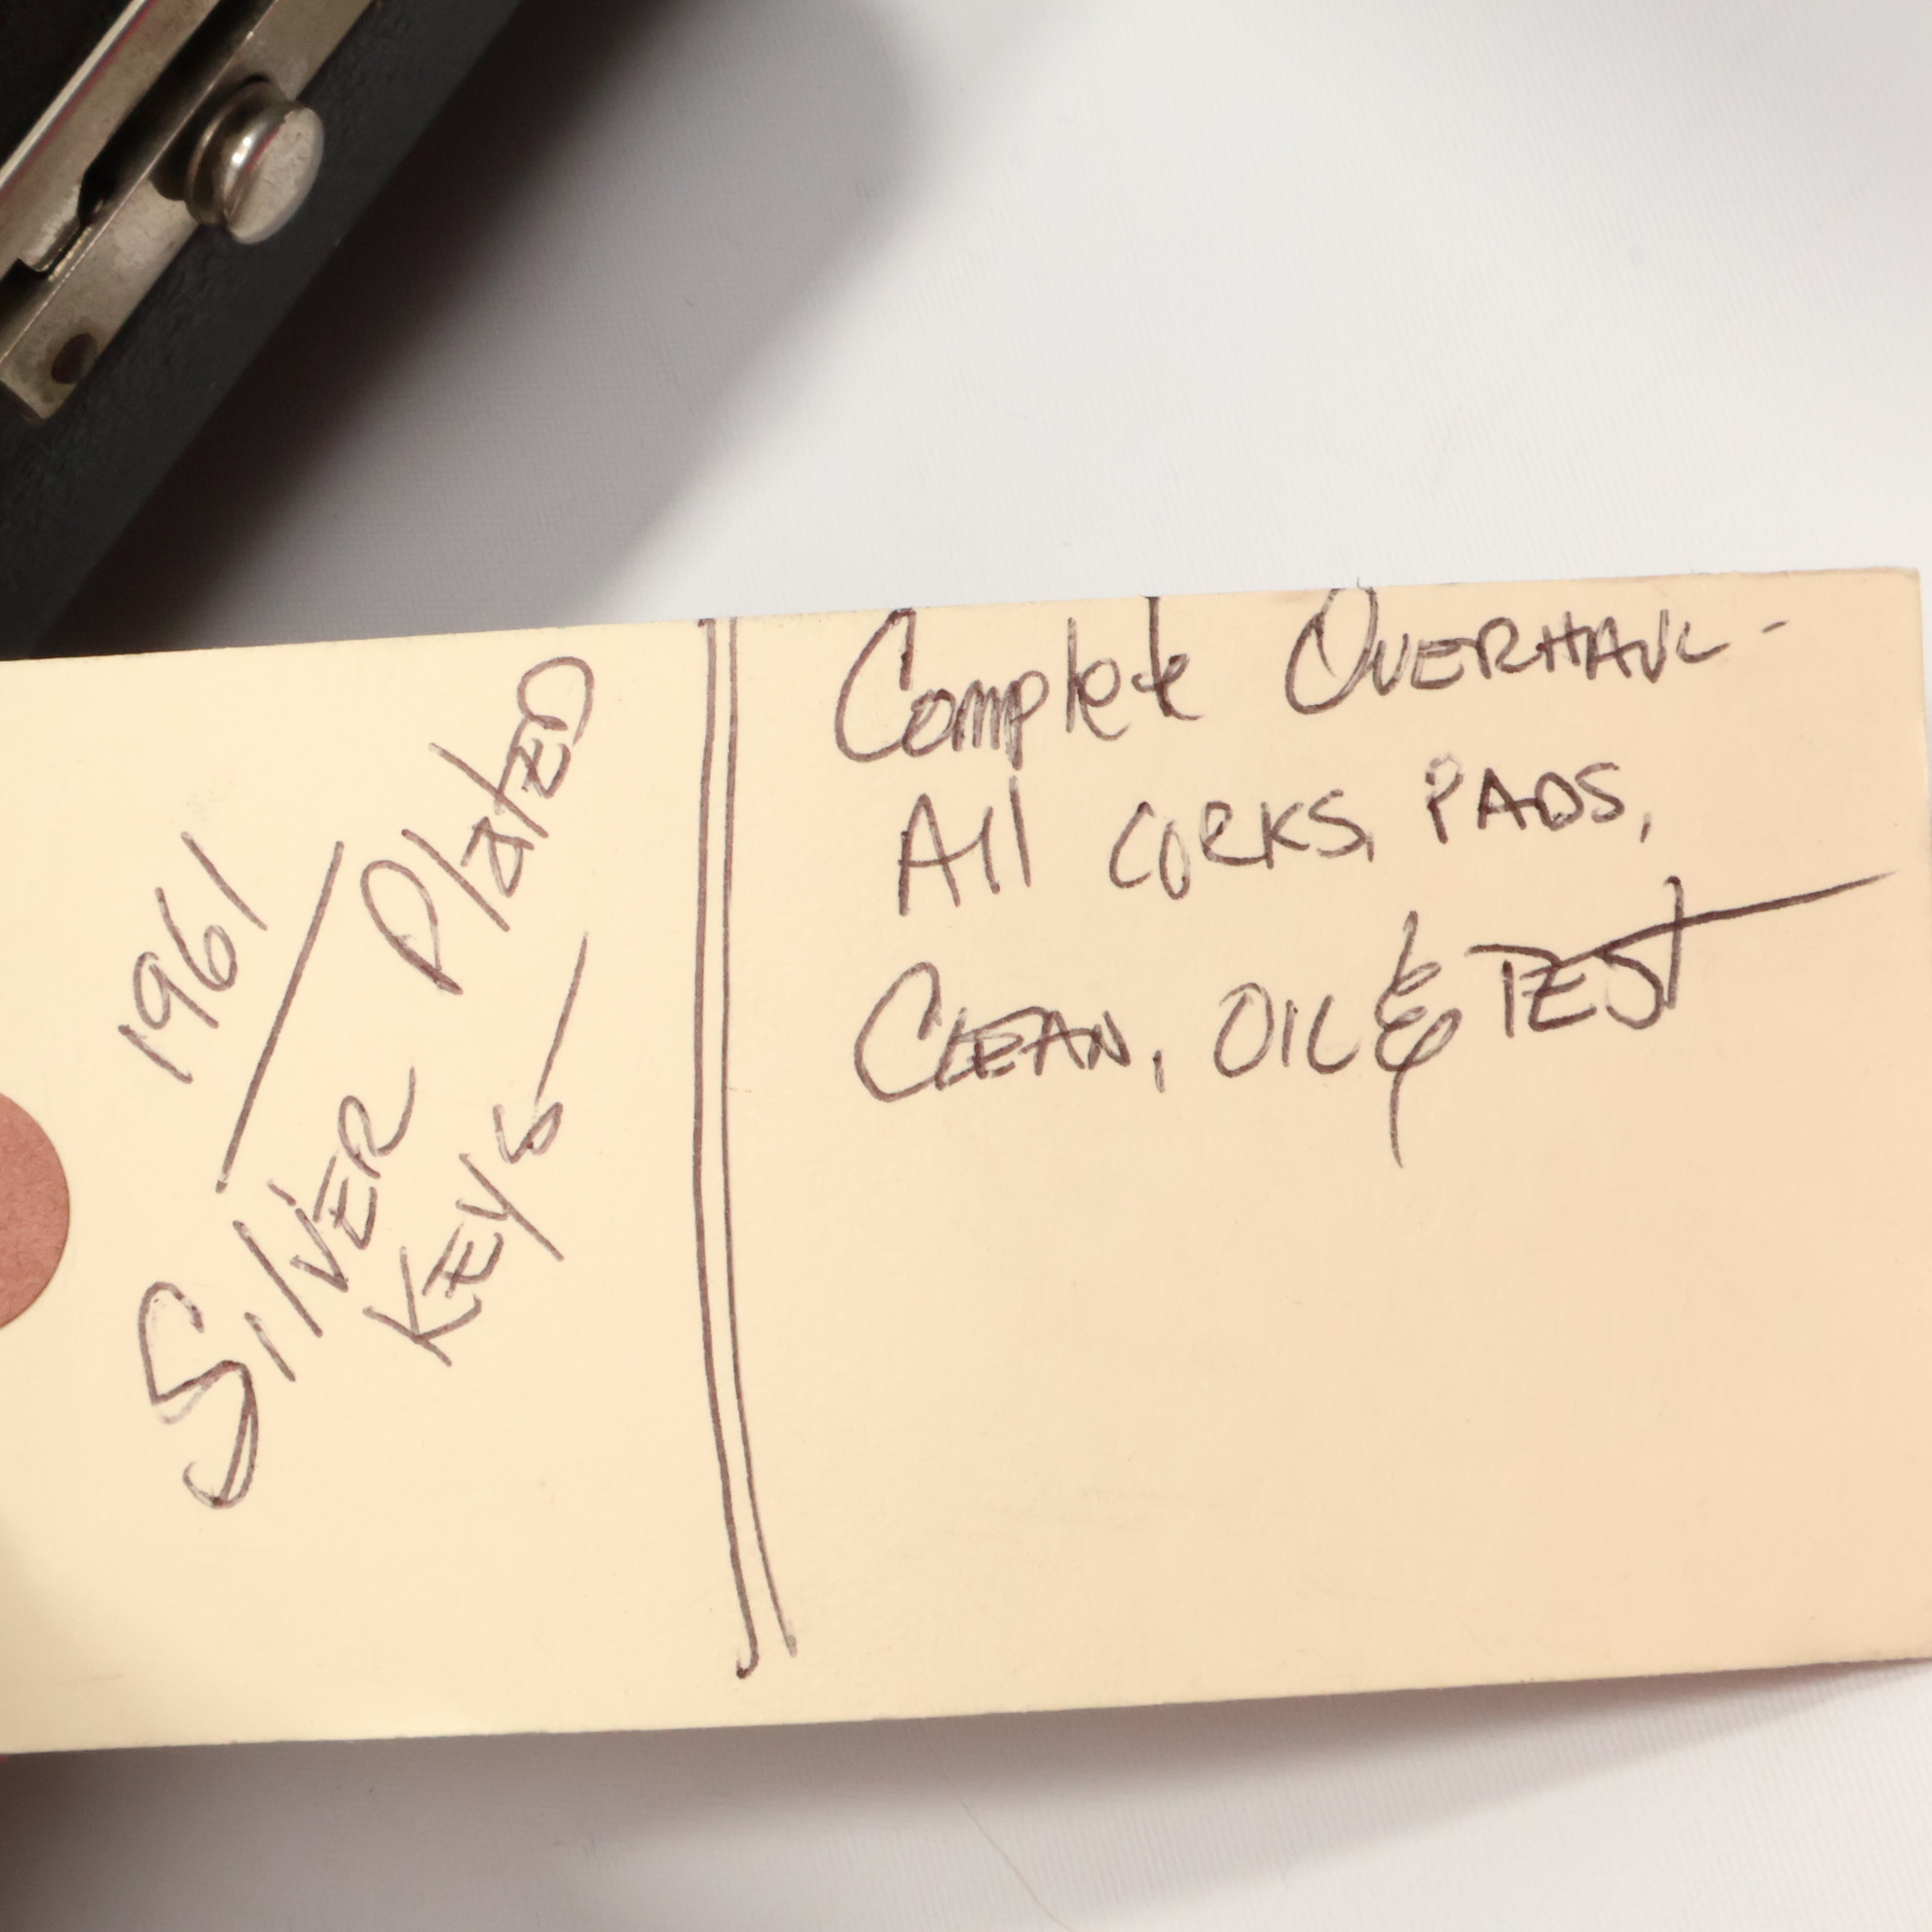 1961
Silver Plated
Keys
Complete Overhaul -
All Corks, Pads,
Clean, Oil & Test